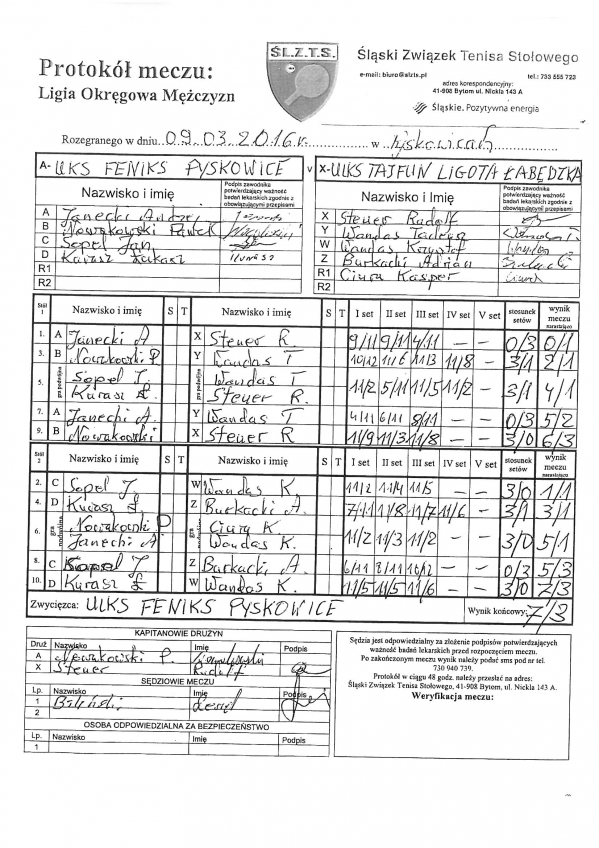 Ś.L.Z.T.S.
Protokół meczu:
Ligia Okręgowa Mężczyzn
Śląski Związek Tenisa Stołowego
e-mail: biuro@slzts.pl tel.: 733 555 723
adres korespondencyjny:
41-908 Bytom ul. Nickla 143 A
Śląskie. Pozytywna energia
Rozegranego w dniu 09.03.2016r. w Pyskowicach
A- UKS FENIKS PYSKOWICE v X- UKS TAJFUN LIGOTA ŁABĘDZKA
Nazwisko i imię Podpis zawodnika potwierdzający ważność badań lekarskich zgodnie z obowiązującymi przepisami Nazwisko i imię Podpis zawodnika potwierdzający ważność badań lekarskich zgodnie z obowiązującymi przepisami
A Janecki Andrzej X Steuer Rudolf
B Nowakowski Patryk Y Wandas Tadeusz
C Sopel Jan W Wandas Krzysztof
D Kurasz Łukasz Z Burkacki Adrian
R1 R1 Ciura Kasper
R2 R2
Stół 1 Nazwisko i imię S T Nazwisko i imię S T I set II set III set IV set V set stosunek setów wynik meczu narastająco
1. A Janecki A X Steuer R. 9/11 9/11 4/11 — — 0/3 0/1
3. B Nowakowski P. Y Wandas T 10/12 11/6 11/3 11/8 — 3/1 2/1
5. gra podwójna Sopel J gra podwójna Wandas T 11/2 5/11 11/5 11/2 — 3/1 4/1
Kurasz Ł. Steuer R.
7. A Janecki A. Y Wandas T 4/11 6/11 8/11 — — 0/3 5/2
9. B Nowakowski X Steuer R. 11/9 11/3 11/8 — — 3/0 6/3
Stół 2 Nazwisko i imię S T Nazwisko i imię S T I set II set III set IV set V set stosunek setów wynik meczu narastająco
2. C Sopel J W Wandas K. 11/2 11/4 11/5 — — 3/0 1/1
4. D Kurasz Ł Z Burkacki A. 7/11 11/8 11/7 11/6 — 3/1 3/1
6. gra podwójna Nowakowski P gra podwójna Ciura K. 11/2 11/3 11/2 — — 3/0 5/1
Janecki A Wandas K.
8. C Sopel J Z Burkacki A. 6/11 8/11 10/12 — — 0/3 5/3
10. D Kurasz Ł W Wandas K. 11/5 11/5 11/6 — — 3/0 7/3
Zwycięzca: UKS FENIKS PYSKOWICE Wynik końcowy: 7/3
KAPITANOWIE DRUŻYN
Druż Nazwisko Imię Podpis
A Nowakowski P.
X Steuer Rudolf
SĘDZIOWIE MECZU
Lp. Nazwisko Imię Podpis
1
2
OSOBA ODPOWIEDZIALNA ZA BEZPIECZEŃSTWO
Lp. Nazwisko Imię Podpis
1
Sędzia jest odpowiedzialny za złożenie podpisów potwierdzających
ważność badań lekarskich przed rozpoczęciem meczu.
Po zakończonym meczu wynik należy podać sms pod nr tel.
730 940 739.
Protokół w ciągu 48 godz. należy przesłać na adres:
Śląski Związek Tenisa Stołowego, 41-908 Bytom, ul. Nickla 143 A.
Weryfikacja meczu: